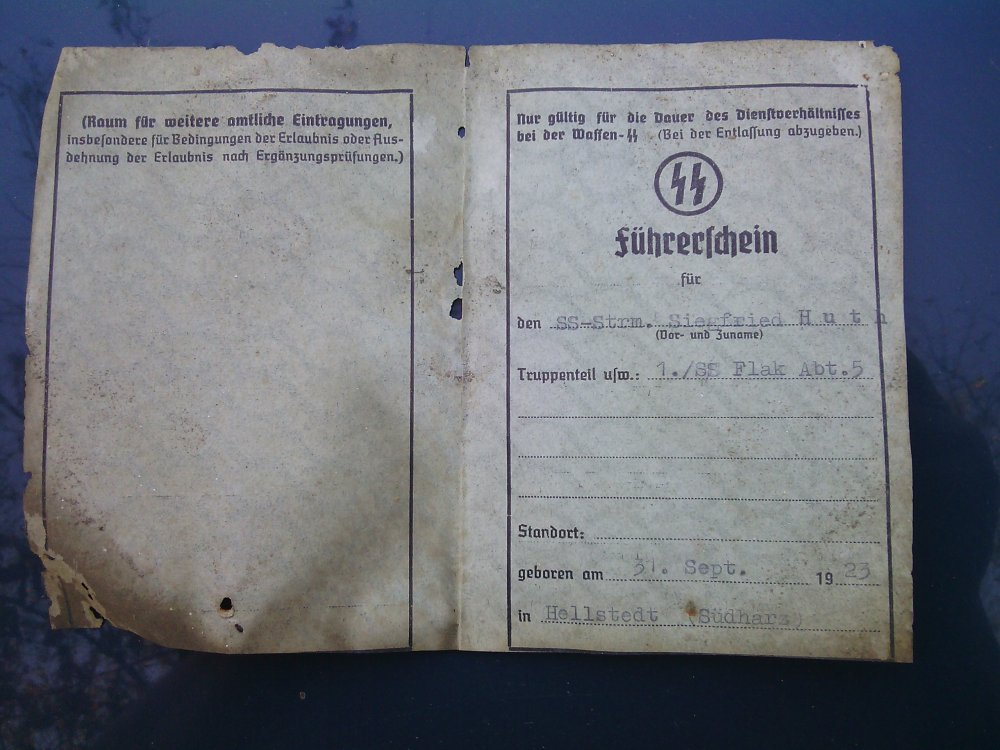 (Raum für weitere amtliche Eintragungen,
insbesondere für Bedingungen der Erlaubnis oder Aus-
dehnung der Erlaubnis nach Ergänzungsprüfungen.)
Nur gültig für die Dauer des Dienstverhältnisses
bei der Waffen-SS (Bei der Entlassung abzugeben.)
SS
Führerschein
für
den SS-Strm. Siegfried Huth
(Vor- und Zuname)
Truppenteil usw.: 1./SS Flak Abt.5
Standort:
geboren am 31. Sept. 1923
in Hellstedt (Südharz)